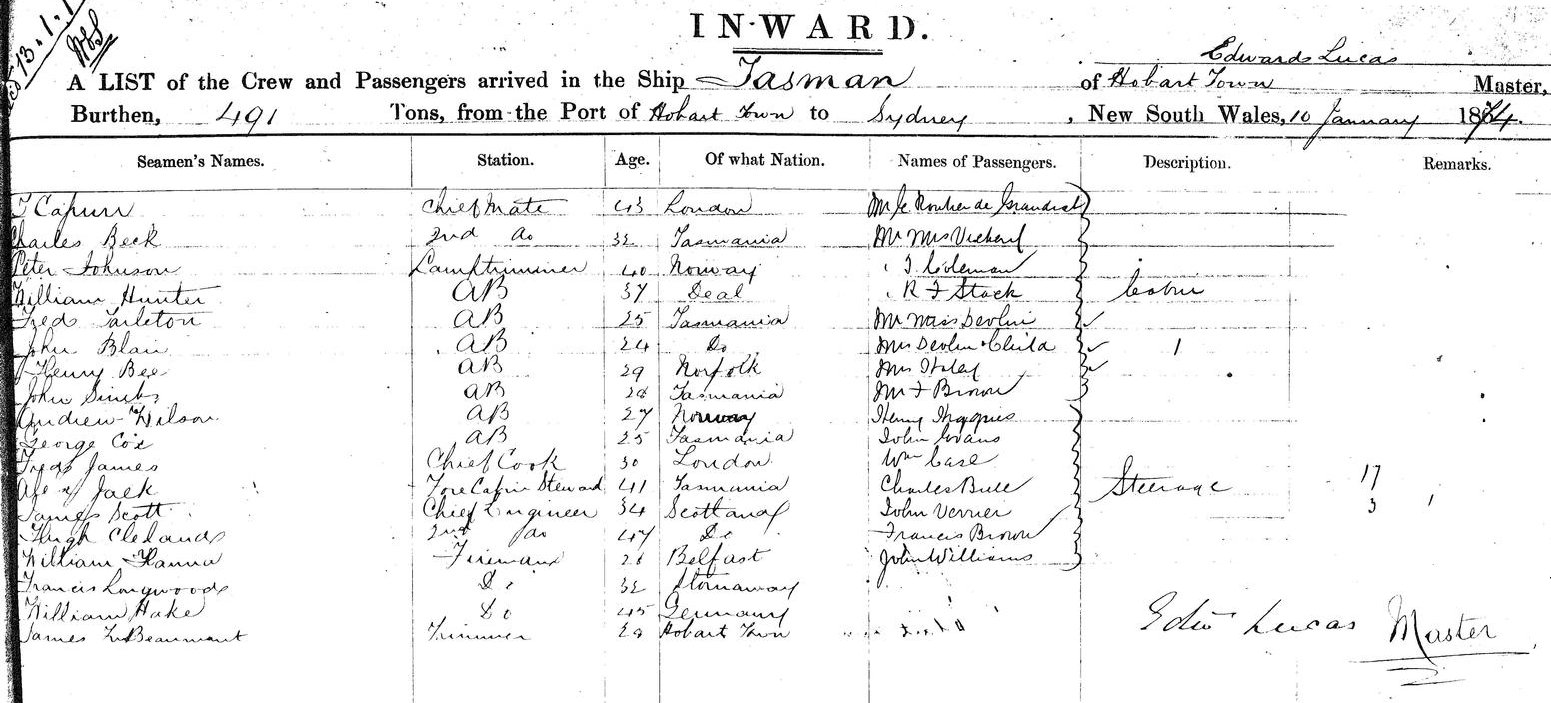 INWARD.
Edwards Lucas
A LIST of the Crew and Passengers arrived in the Ship Tasman of Hobart Town Master,
Burthen, 491 Tons, from the Port of Hobart Town to Sydney, New South Wales, 10 January 1874.
Seamen's Names. Station. Age. Of what Nation. Names of Passengers. Description. Remarks.
T Capurr Chief Mate 43 London
Charles Beck 2nd Do 32 Tasmania Mr Mrs
Peter Johnson Lamptrimmer 40 Norway T Coleman
William Hunter AB 37 Deal R F Stack Cabin
Fred Tarleton AB 25 Tasmania Mr Miss Devlin
John Blair AB 24 Do Mrs Devlin & Child 1
Henry Bee AB 29 Norfolk Mrs
John AB 28 Tasmania Mr F Brown
Andrew Wilson AB 27 Norway Henry
George Cox AB 25 Tasmania John Evans
Fred James Chief Cook 30 London Wm Case
Jack Fore Cabin Steward 41 Tasmania Charles Bull Steerage 17
James Scott Chief Engineer 34 Scotland John Verrier 3
Hugh Clelands 2nd Do 47 Do Francis Brown
William Hanna Fireman 26 Belfast John Williams
Francis Longwoods Do 32 Stornaway
William Hake Do 45 Germany
James Beaumont Trimmer 29 Hobart Town
Edw Lucas Master